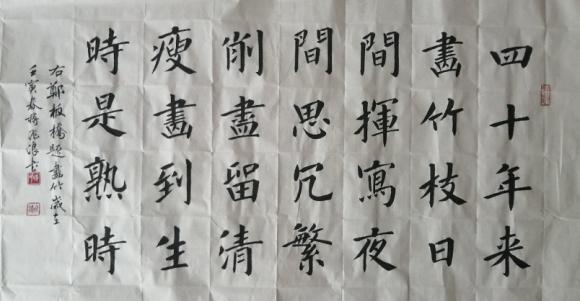 四十年来
畫竹枝日
間揮寫夜
間思冗繁
削盡留清
瘦畫到生
時是熟時
右鄭板橋題畫竹歲在
壬寅春